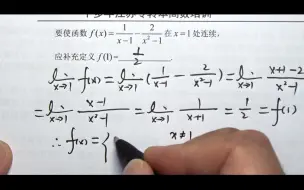 要使函数 f(x)=1/(x-1) - 2/(x²-1) 在 x=1 处连续,
应补充定义 f(1)= 1/2 .
lim_{x→1} f(x) = lim_{x→1} (1/(x-1) - 2/(x²-1)) = lim_{x→1} (x+1-2)/(x²-1)
= lim_{x→1} (x-1)/(x²-1) = lim_{x→1} 1/(x+1) = 1/2 = f(1)
∴ f(x)= { x≠1